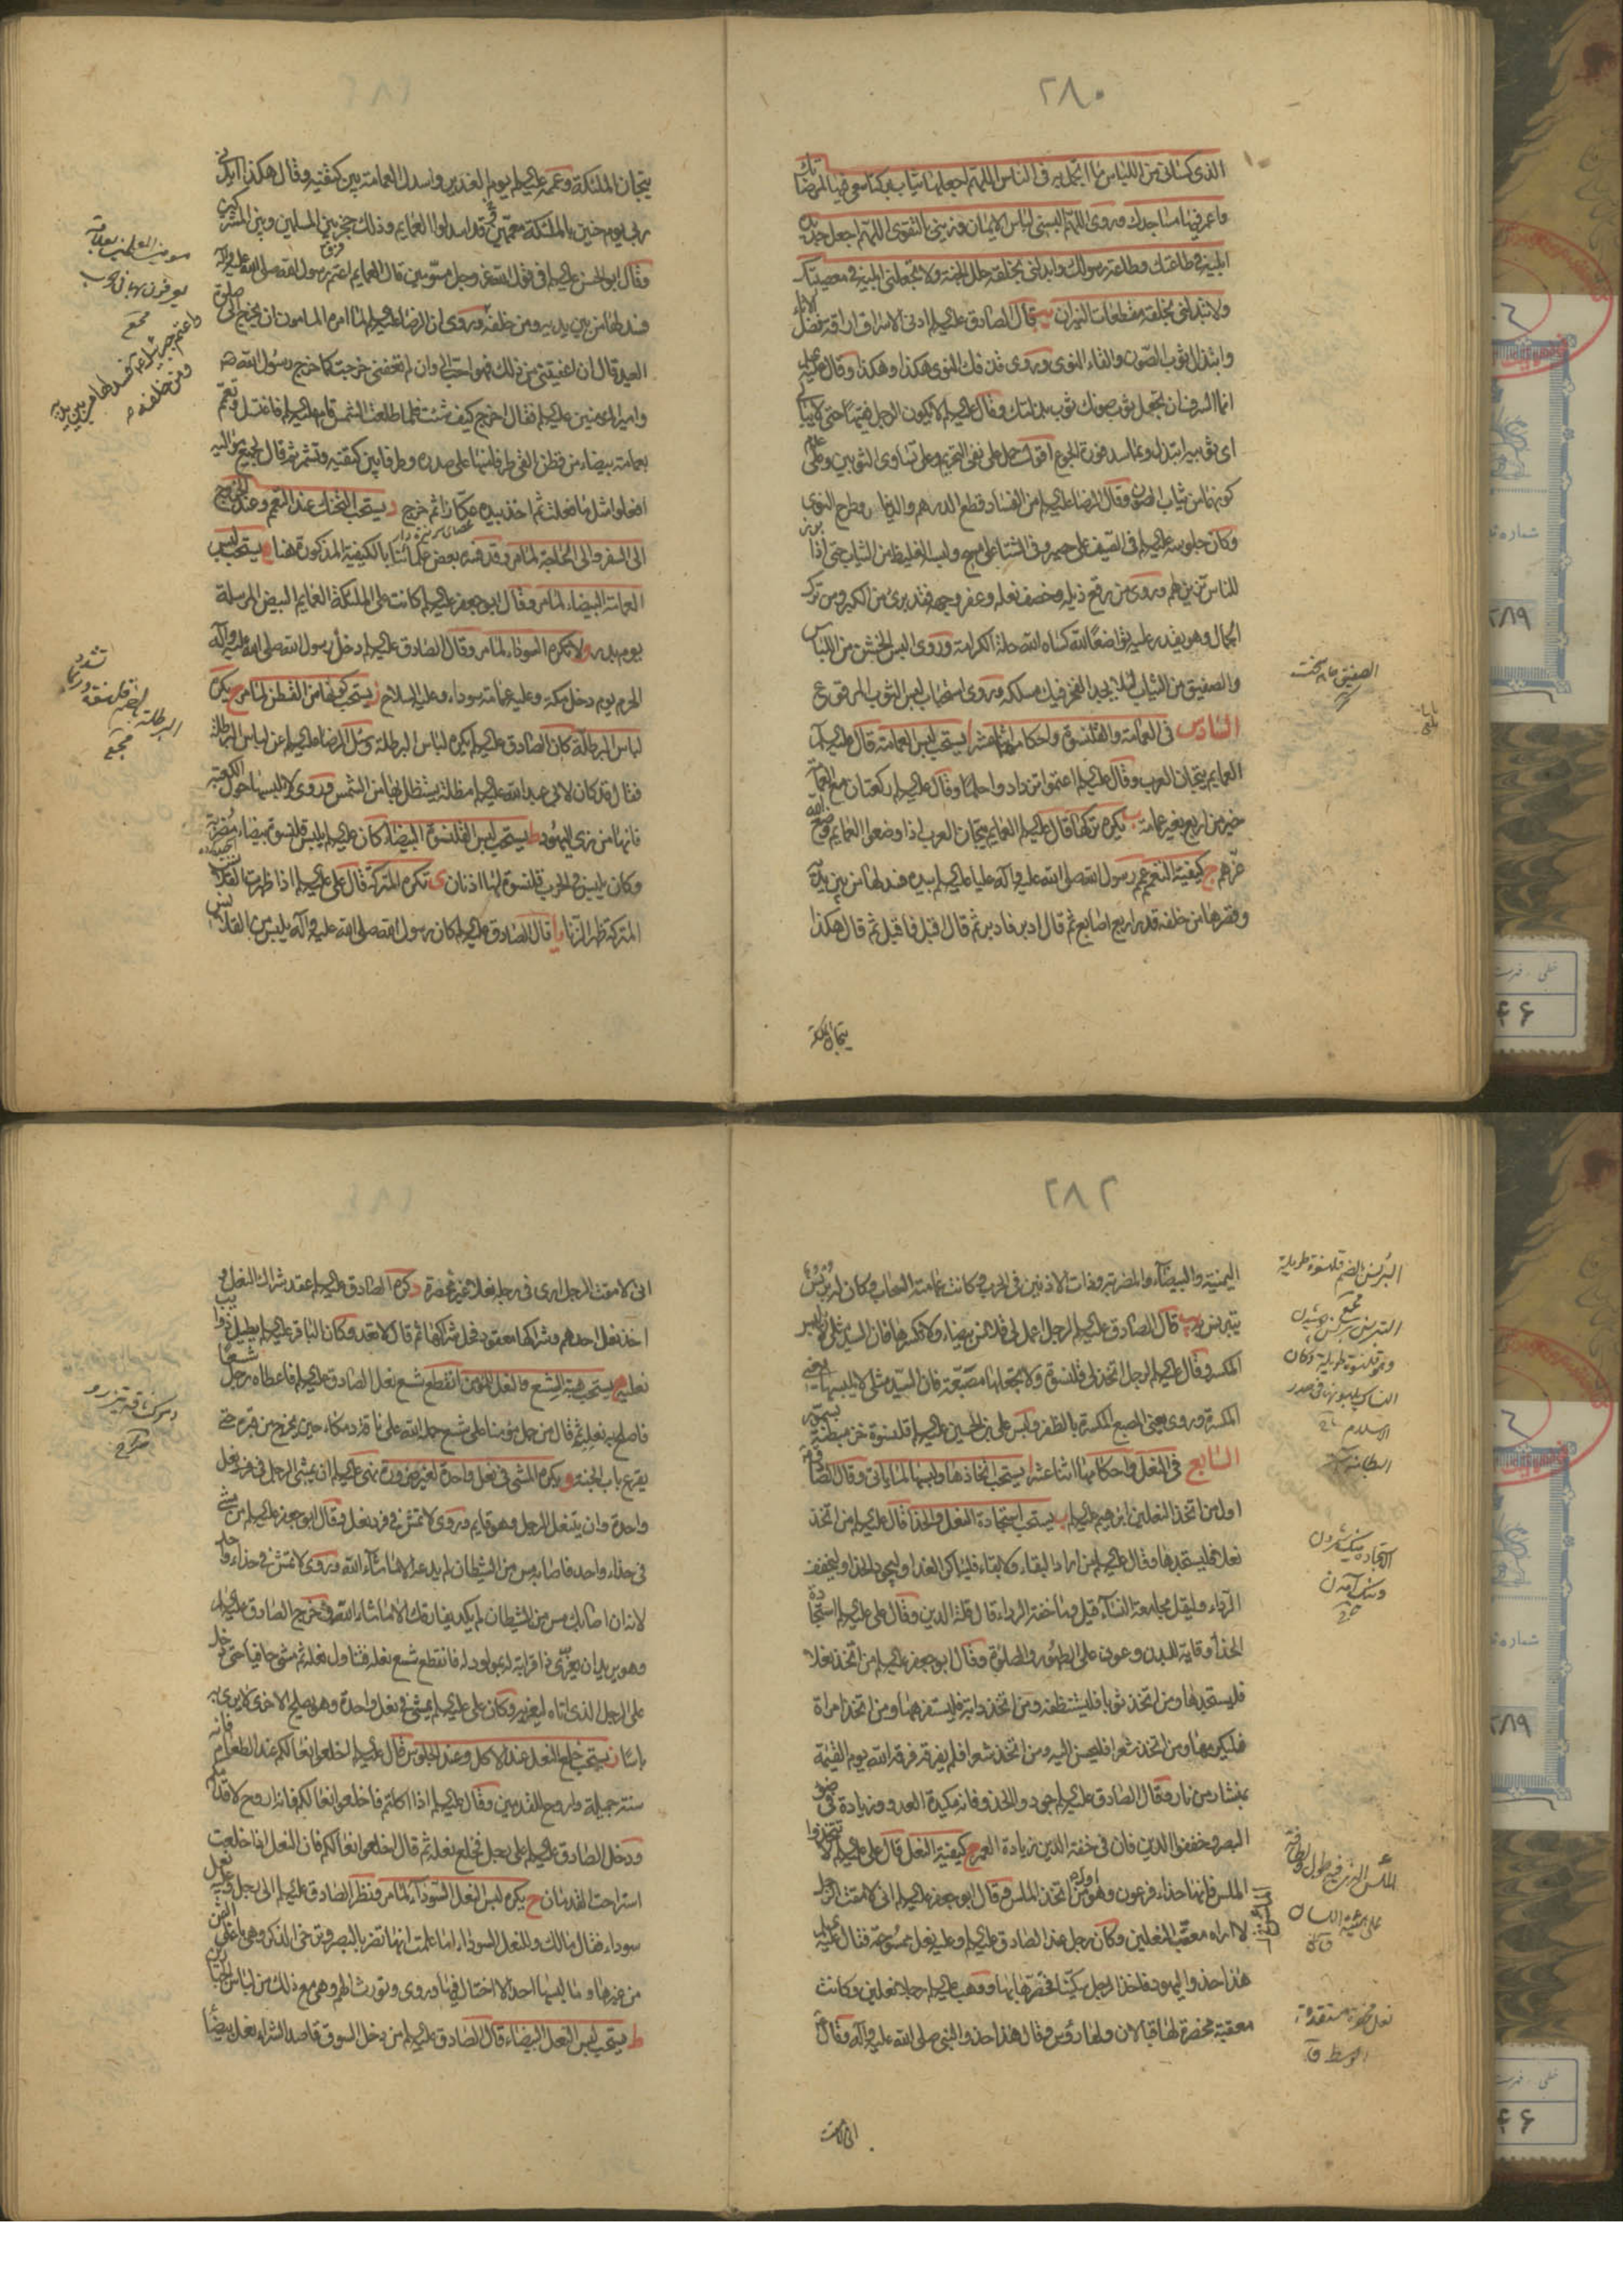 ٢٨٠
الذى كسانى من اللباس ما اتجمل به فى الناس اللهم اجعلها ثياب بركة اسعى فيها لمرضاتك
واعمر فيها مساجدك وروى اللهم البسنى لباس الايمان وزينى بالتقوى اللهم اجعل جديده
ابليه فى طاعتك وطاعة رسولك وابدلنى بخلقه حلل الجنة ولا تجعلنى ابليه فى معصيتك
ولا تبدلنى بخلقه مقطعات النيران قال الصادق عليه السلم ادنى الاسراف اراقة فضل الاناء
وابتذال ثوب الصون والقاء النوى وروى قذفك النوى هكذا وهكذا وقال عليه
انما السرف ان تجعل ثوب صونك ثوب بذلتك وقال عليه السلم لا يكون الرجل فقيها حتى لا يبالى
اى ثوبيه ابتذل وبما سد فورة الجوع اقول حمل على نفى التحريم وعلى تساوى الثوبين وعلى عدم
كونها من ثياب الصون وقال الرضا عليه السلم من الفساد قطع الدرهم والدينار وطرح النوى
وكان جلوسه عليه السلم فى الصيف على حصير وفى الشتاء على مسح ولبسه الغليظ من الثياب حتى اذا برز
للناس تزين لهم وروى من رقع ذيله وخصف نعله وعفر وجهه فقد برئ من الكبر ومن ترك
الجمال وهو يقدر عليه تواضعا لله كساه الله حلة الكرامة وروى البس الخشن من اللباس
والصفيق من الثياب لئلا يجد الفخر فيك مسلكه وروى استحباب لبس الثوب المرقوع
السادس فى العمامة والقلنسوة واحكامها اثنا عشر ا يستحب لبس العمامة قال عليه السلم
العمايم تيجان العرب وقال عليه السلم اعتموا تزدادوا حلما وقال عليه السلم ركعتان مع العمامة
خير من اربع بغير عمامة ب يكره تركها قال عليه السلم العمايم تيجان العرب اذا وضعوا العمايم وضع الله
عزهم ج كيفية التعمم عمم رسول الله صلى الله عليه واله عليا عليه السلم بيده فسدلها من بين يديه
وقصرها من خلفه قدر اربع اصابع ثم قال ادبر فادبر ثم قال اقبل فاقبل ثم قال هكذا
تيجان الملئكة
الصفيق جامه سخت
تيجان الملئكة وعممه عليه السلم يوم الغدير واسدل العمامة بين كتفيه وقال هكذا ايدنى
ربى يوم حنين بالملئكة معممين قد اسدلوا العمايم وذلك حجز بين المسلمين وبين المشركين
وقال ابو الحسن عليه السلم فى قول الله عز وجل مسومين قال العمايم اعتم رسول الله صلى الله عليه واله
فسدلها من بين يديه ومن خلفه وروى ان الرضا عليه السلم لما امره المامون ان يخرج الى صلوة
العيد قال ان اعفيتنى من ذلك فهو احب الى وان لم تعفنى خرجت كما خرج رسول الله ص
وامير المؤمنين عليه السلم فقال اخرج كيف شئت فلما طلعت الشمس قام عليه السلم فاغتسل وتعمم
بعمامة بيضاء من قطن القى طرفا منها على صدره وطرفا بين كتفيه وتشمر ثم قال لجميع مواليه
افعلوا مثل ما فعلت ثم اخذ بيده عكازا ثم خرج د يستحب التحنك عند التعمم وعند الخروج
الى السفر والى الحاجة لما مر وقد فسره بعض علمائنا بالكيفية المذكورة هنا ه يستحب لبس
العمامة البيضاء لما مر وقال ابو جعفر عليه السلم كانت على الملئكة العمايم البيض المرسلة
يوم بدر و لا تكره السوداء لما مر وقال الصادق عليه السلم دخل رسول الله صلى الله عليه واله
الحرم يوم دخل مكة وعليه عمامة سوداء وعليه السلاح ز يستحب كونها من القطن لما مر ح يكره
لباس البرطلة كان الصادق عليه السلم يكره لباس البرطلة وسئل الرضا عليه السلم عن لباس البرطلة
فقال قد كان لابى عبد الله عليه السلم مظلة يستظل بها من الشمس وروى لا تلبسها حول الكعبة
فانها من زى اليهود ط يستحب لبس القلنسوة البيضاء كان عليه السلم يلبس قلنسوة بيضاء مضربة
وكان يلبس فى الحرب قلنسوة لها اذنان ى تكره المتركة قال على عليه السلم اذا ظهرت القلانس
المتركة ظهر الزنا يا قال الصادق عليه السلم كان رسول الله صلى الله عليه واله يلبس من القلانس
عصاى سر نيزه دار
واعتم جبرئيل ع فسدلها من بين يديه
ومن خلفه
مجمع
البرطلة بالضم قلنسوة وربما تشدد
مجمع
٢٨٢
اليمنية والبيضاء والمضربة وذات الاذنين فى الحرب وكانت عمامته السحاب وكان له برنس
يتبرنس به يب قال الصادق عليه السلم لرجل اعمل لى قلانس بيضاء ولا تكسرها فان السيد مثلى لا يلبس
المكسر وقال عليه السلم لرجل اتخذ لى قلنسوة ولا تجعلها مصبعة فان السيد مثلى لا يلبسها يعنى
المكسرة وروى يعنى الصبع المكسرة بالظفر ولبس على بن الحسين عليه السلم قلنسوة خز مبطنة بسمور
السابع فى النعل واحكامها اثنا عشر ا يستحب اتخاذها ولبسها لما ياتى وقال الصادق
اول من اتخذ النعلين ابرهيم عليه السلم ب يستحب استجادة النعل والحذا قال عليه السلم من اتخذ
نعلا فليستجدها وقال عليه السلم من اراد البقاء ولا بقاء فليباكر الغداء وليجود الحذاء وليخفف
الرداء وليقل مجامعة النساء قيل وما خفة الرداء قال قلة الدين وقال على عليه السلم استجادة
الحذاء وقاية للبدن وعون على الطهور والصلوة وقال ابو جعفر عليه السلم من اتخذ نعلا
فليستجدها ومن اتخذ ثوبا فليستنظفه ومن اتخذ دابة فليستفرهها ومن اتخذ امراة
فليكرمها ومن اتخذ شعرا فليحسن اليه ومن اتخذ شعرا فلم يفرقه فرقه الله يوم القيمة
بمنشار من نار وقال الصادق عليه السلم جودوا الحذو فانه مكيدة العدو وزيادة فى ضوء
البصر وخففوا الدين فان فى خفة الدين زيادة العمر ج كيفية النعل قال على عليه السلم لا تتخذوا
الملس فانها حذاء فرعون وهو اول من اتخذ الملس وقال ابو جعفر عليه السلم انى لامقت الرجل
لا اراه معقب النعلين وكان رجل عند الصادق عليه السلم وعليه نعل ممسوحة فقال عليه السلم
هذا حذو اليهود فاخذ الرجل سكينا فخصرها بها ووهب عليه السلم رجلا نعلين وكانت
معقبة مخصرة لها قبالان ولها رؤس وقال هذا حذو النبى صلى الله عليه واله وقال
انى لامقت
البرنس بالضم قلنسوة طويلة
مجمع
التبرنس برنس پوشيدن
وهو قلنسوة طويلة وكان
النساك يلبسونها فى صدر
الاسلام
الملس الذى فيه طول ولطافة
على هيئة اللسان
انى لامقت الرجل ارى فى رجله نعلا غير مخصرة د كره الصادق عليه السلم عقد شراك النعل و
اخذ نعل احدهم وشراكها معقود فحل شراكها ثم قال لا تعقد وكان الباقر عليه السلم يطيل ذوايب
نعليه ه يستحب هبة الشسع والنعل للمؤمن انقطع شسع نعل الصادق عليه السلم فاعطاه رجل شسعا
فاصلح به نعله ثم قال من حمل مؤمنا على شسع حمله الله على ناقة دمكاء حين يخرج من قبره حتى
يقرع باب الجنة و يكره المشى فى نعل واحدة لغير ضرورة نهى عليه السلم ان يمشى الرجل فى فرد نعل
واحدة وان يتنعل الرجل وهو قايم وروى لا تمش فى فرد نعل وقال ابو جعفر عليه السلم من مشى
فى حذاء واحد فاصابه مس من الشيطان لم يدعه الا ما شاء الله وروى لا تمش فى حذاء واحد
لانه ان اصابك مس من الشيطان لم يكد يفارقك الا ما شاء الله وخرج الصادق عليه السلم
وهو يريد ان يعزى ذا قرابة له بمولود له فانقطع شسع نعله فتناول نعله ثم مشى حافيا حتى دخل
على الرجل الذى اتاه ليعزيه وكان على عليه السلم يمشى فى نعل واحدة وهو يصلح الاخرى لا يرى به
باسا ز يستحب خلع النعل عند الاكل وعند الجلوس قال عليه السلم اخلعوا نعالكم عند الطعام فانه
سنة جميلة واروح للقدمين وقال عليه السلم اذا اكلتم فاخلعوا نعالكم فانه اروح لاقدامكم
ودخل الصادق عليه السلم على رجل فخلع نعله ثم قال اخلعوا نعالكم فان النعل اذا خلعت
استراحت القدمان ح يكره لبس النعل السوداء لما مر ونظر الصادق عليه السلم الى رجل وعليه نعل
سوداء فقال مالك وللنعل السوداء اما علمت انها تضر بالبصر وترخى الذكر وهى اغلى الثمن
من غيرها وما لبسها احد الا اختال فيها وروى وتورث الهم وهى مع ذلك من لباس الجبارين
ط يستحب لبس النعل البيضاء قال الصادق عليه السلم من دخل السوق قاصدا لشراء نعل بيضاء